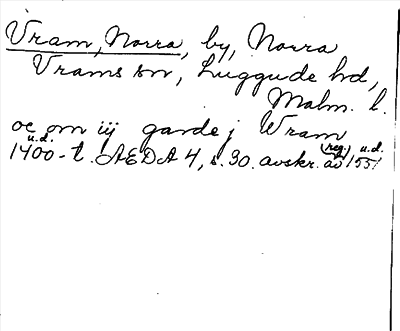 Vram, Norra, by, Norra
Vrams sn, Luggude hd,
Malm. l.
oc om iij garde j Wram
u.d. (reg.) u.d.
1400-t. AEDA 4, s. 30. avskr. av 1551